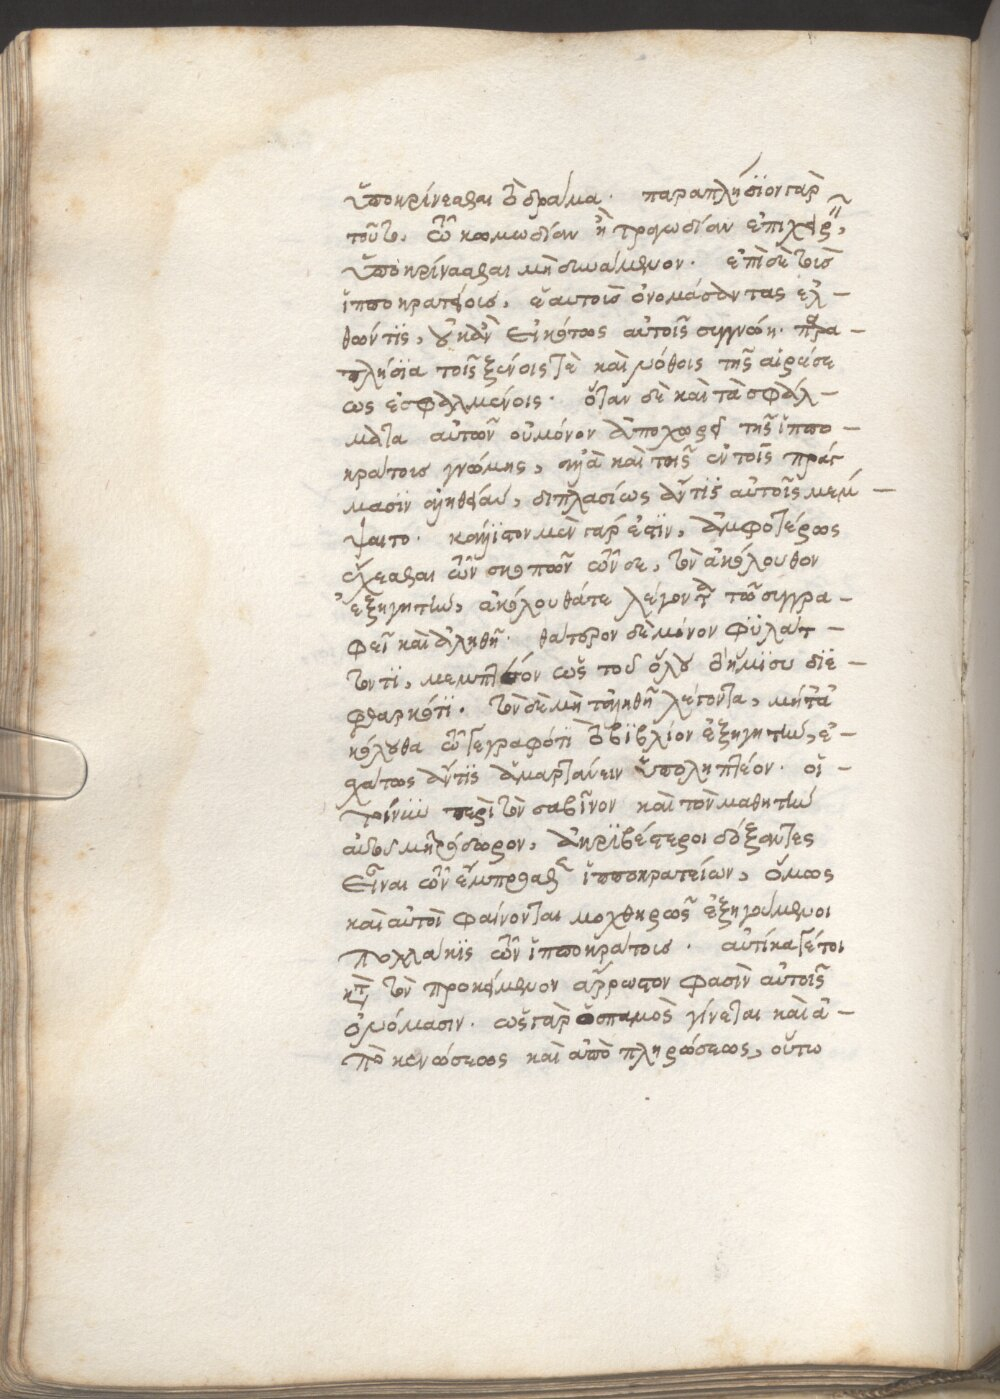 ὑποκρίνεσθαι τὸ δρᾶμα· παραπλήσϊον γὰρ
τοῦτο, τῶ κωμωδίαν ἢ τραγωδίαν ἐπιχειρ
ὑποκρίνασθαι μὴ δυνάμενον· ἐπὶ δὲ τοῖς
ἱπποκρατείοις, ἑαυτοὺς ὀνομάσαντας ἐλ-
θόντϊς, οὐκἂν εἰκότως αὐτοῖς συγγνώη· παρα-
πλήσϊα τοῖς ξένοις τὲ καὶ νόθοις τῆς αἱρέσε
ως ἐσφαλμένοις· ὅταν δὲ καὶ τὰ σφάλ-
ματα αὐτῶν οὐμόνον ἀποχωρεῖ τῆς ἱππο-
κράτους γνώμης, ἀλλὰ καὶ τῆς ἐν τοῖς πράγ
μασϊν ἀληθείας, διπλασίως ἄν τϊς αὐτοῖς μέμ-
ψαιτο· κάλλϊστον μὲν γάρ ἐστϊν, ἀμφοτέρως
ἔχεσθαι τῶν σκοπῶν τῶνδε, τὸν ἀκόλουθον
ἐξηγητὴν, ἀκόλουθά τε λέγοντα τῶ συγγρα-
φεῖ καὶ ἀληθῆ· θάτερον δὲ μόνον φυλάτ-
τοντϊ, μεμπτέον ὡς τοῦ ὅλου τὸ ἥμϊσυ δϊε-
φθαρκότϊ· τὸν δὲ μὴ τἀληθῆ λέγοντα, μήτ' ἀ
κόλουθα τῶ γεγραφότϊ τὸ βϊβλίον ἐξηγητὴν, ἐ-
σχάτως ἄν τϊς ἁμαρτάνειν ὑποληπτέον· οἱ-
τοίνυν περὶ τὸν σαβῖνον καὶ τὸν μαθητὴν
αὐτοῦ μητρόδωρον, ἀκρϊβέστεροι δόξαντες
εἶναι τῶν ἔμπροσθεν ἱπποκρατείων, ὅμως
καὶ αὐτοὶ φαίνονται μοχθηρῶς ἐξηγούμενοι
πολλάκϊς τῶν ἱπποκράτους· αὐτίκα γέτοι
κατὰ τὸν προκείμενον ἄρρωστον φασὶν αὐτοῖς
ὀνόμασιν· ὡς γὰρ ὁ σπασμὸς γίνεται καὶ ἀ-
πὸ κενώσεως καὶ ἀπὸ πληρώσεως, οὕτω